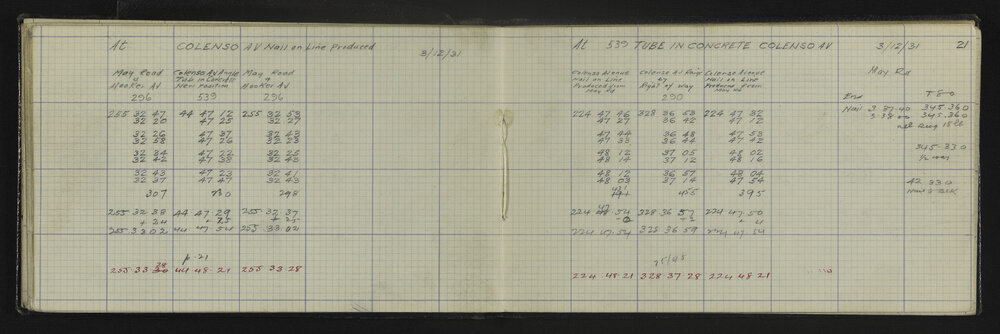 At COLENSO AV Nail on Line Produced 3/12/31
May Road & Hooker AV 296
Colenso AV Angle Tube in Concrete New Position 539
May Road & Hooker AV 296
255 32 47 44 47 12 255 32 53
32 20 47 23
32 26 47 37
32 58 47 26
32 34 47 22
32 42 47 38
32 43 47 23 32 41
32 37 47 47 32 43
307 298
255.32.38 44 47.29 255.32.37
+ 24 + 25
255.33.02 44 47.54 255.33.02
p.21
255.33.28 44.48.21 255.33.28
At 539 TUBE IN CONCRETE COLENSO AV 3/12/31 21
Colenso Avenue Nail on Line Produced from May Rd
Colenso AV Pang by Right of Way 290
Colenso Avenue Nail on Line Produced from May Rd
May Rd
224 47 46 328 36 53 224 47 32
47 27 36 42 47 12
47 44 36 48 47 53
47 35 36 44 47 42
48 12 37 05 48 02
48 14 37 12 48 16
48 12 36 57 48 04
48 03 37 14 47 54
455 395
224 47.54 328.36 57 224 47.50
224 47.54 328 36 59 224 47.54
224.48.21 328.37.28 224 48 21
End T80
Nail 3.37.40 345.360
3.38 345.360
345.330
42.330